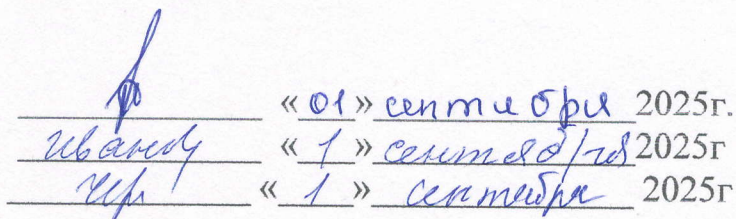 « 01 » сентября 2025г.
« 1 » сентября 2025г
« 1 » сентября 2025г